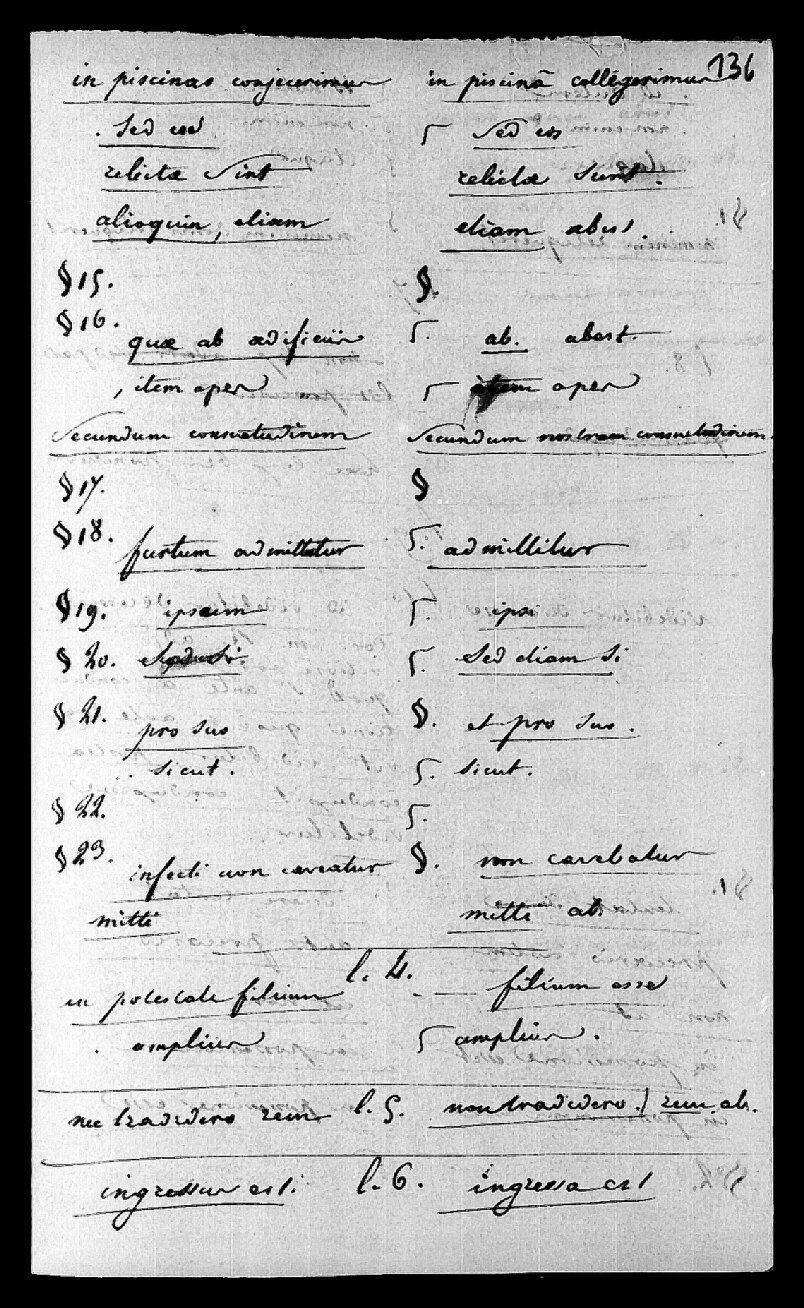 136
in piscinas conjecerimus in piscinā collegerimus
. Sed eæ ς Sed eæ
relictæ sint relictæ sunt.
alioquin, etiam etiam abest.
§ 15. §.
§ 16. quæ ab ædificiis ς. ab. abest.
, item aper ς item aper
secundum consuetudinem secundum nostram consuetudinem.
§ 17. §
§ 18. furtum admittetur ς. admittitur
§ 19. ipsum ς. ipsi
§ 20. ς. Sed etiam si
§ 21. pro suo §. et pro suo.
. sicut. ς. sicut.
§ 22. ς.
§ 23. infecti non caveatur §. non cavebatur
mitti mitti ab.
in potestate filium l. 4. filium esse
. amplius ς amplius.
nec tradidero rem l. 5. non tradidero.) rem. ab.
ingressus est. l. 6. ingressa est